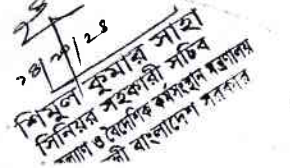 ২৪/১০/২৪
শিমুল কুমার সাহা
সিনিয়র সহকারী সচিব
কল্যাণ ও বৈদেশিক কর্মসংস্থান মন্ত্রণালয়
বাংলাদেশ সরকার